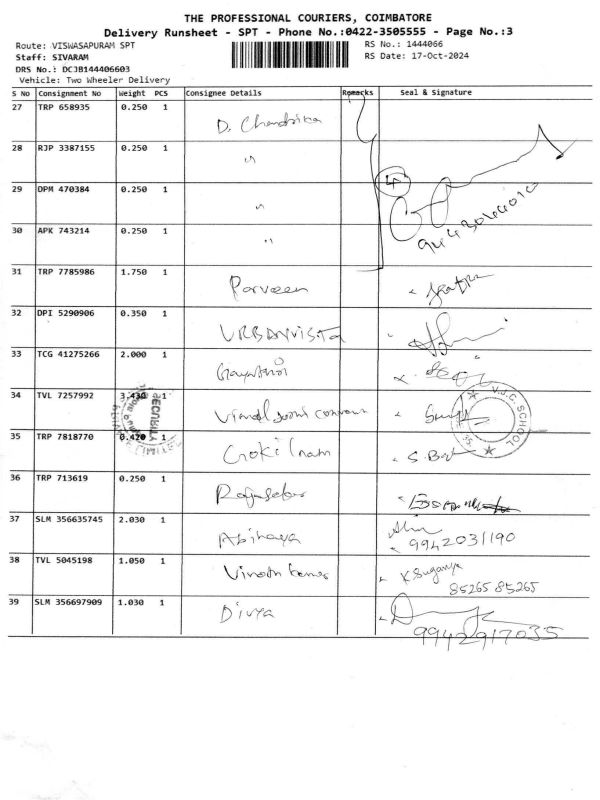 THE PROFESSIONAL COURIERS, COIMBATORE
Delivery Runsheet - SPT - Phone No.:0422-3505555 - Page No.:3
Route: VISWASAPURAM SPT RS No.: 1444066
Staff: SIVARAM RS Date: 17-Oct-2024
DRS No.: DCJB144406603
Vehicle: Two Wheeler Delivery
S No Consignment No Weight PCS Consignee Details Remarks Seal & Signature
27 TRP 658935 0.250 1 D. Chandrika
28 RJP 3387155 0.250 1 "
29 DPM 470384 0.250 1 "
30 APK 743214 0.250 1 "
31 TRP 7785986 1.750 1 Parveen
32 DPI 5290906 0.350 1 URBANVISTA
33 TCG 41275266 2.000 1 Gayathiri
34 TVL 7257992 3.430 1 V.J.C. SCHOOL
35 TRP 7818770 0.420 1
36 TRP 713619 0.250 1
37 SLM 356635745 2.030 1 Abinaya 9942031190
38 TVL 5045198 1.050 1 K Suganya 85265 85265
39 SLM 356697909 1.030 1 Divya 9942917035